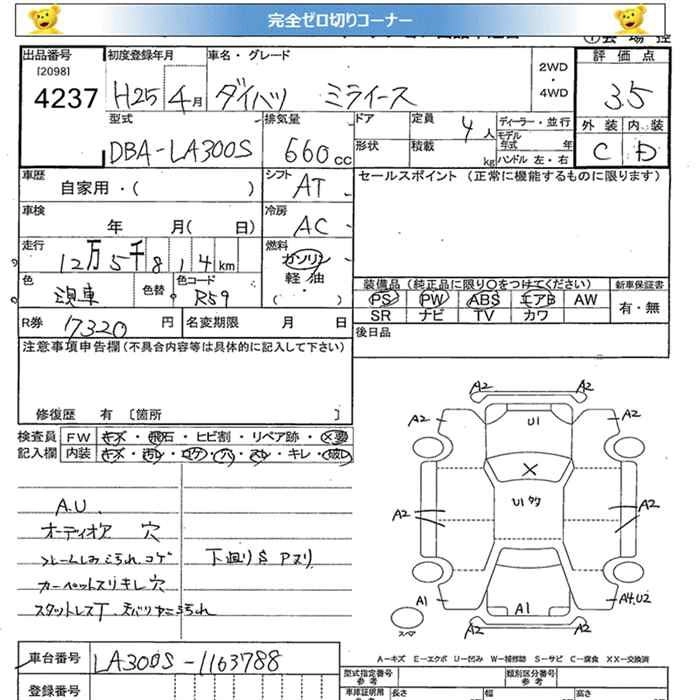 完全ゼロ切りコーナー
出品番号 初度登録年月 車名・グレード 評価点
[2098]
4237 H25 4月 ダイハツ ミライース 2WD・4WD 3.5
型式 排気量 ドア 定員 4人 ディーラー・並行 外装 内装
DBA-LA300S 660cc 形状 積載 kg モデル年式 年 C D
ハンドル 左・右
車歴 シフト セールスポイント (正常に機能するものに限ります)
自家用・( ) AT
車検 冷房
年 月( 日) AC
走行 燃料
12万5千814km ガソリン
軽油
( )
色 色替 色コード 装備品(純正品に限り○をつけてください) 新車保証書
R59 PS PW ABS エアB AW 有・無
SR ナビ TV カワ
R券 17320円 名変期限 月 日 後日品
注意事項申告欄(不具合内容等は具体的に記入して下さい)
修復歴 有 〔箇所 〕
検査員 FW キズ・飛石・ヒビ割・リペア跡・X要
記入欄 内装 キズ・汚れ・コゲ・穴・スレ・キレ・破レ
A2 A2
A2 U1 A2
X
A2 U1 タク A2
A1 A1 A4,U2
スペア
A.U.
オーディオア 穴
下廻りS アヌリ
カーペットスリキレ穴
スタットレスT.
A-キズ E-エクボ U-凹み W-補修跡 S-サビ C-腐食 XX-交換済
車台番号 LA300S-1163788
登録番号
型式指定番号 類別区分番号
参考 参考
車庫証明用 長さ 幅 高さ